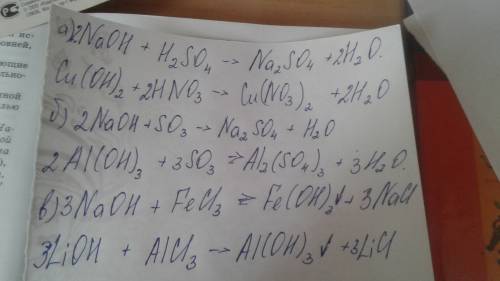 а) 2NaOH + H₂SO₄ → Na₂SO₄ + 2H₂O.
Cu(OH)₂ + 2HNO₃ → Cu(NO₃)₂ + 2H₂O
б) 2NaOH + SO₃ → Na₂SO₄ + H₂O
2Al(OH)₃ + 3SO₃ ⇄ Al₂(SO₄)₃ + 3H₂O.
в) 3NaOH + FeCl₃ ⇄ Fe(OH)₃↓ + 3NaCl
3LiOH + AlCl₃ → Al(OH)₃↓ + 3LiCl